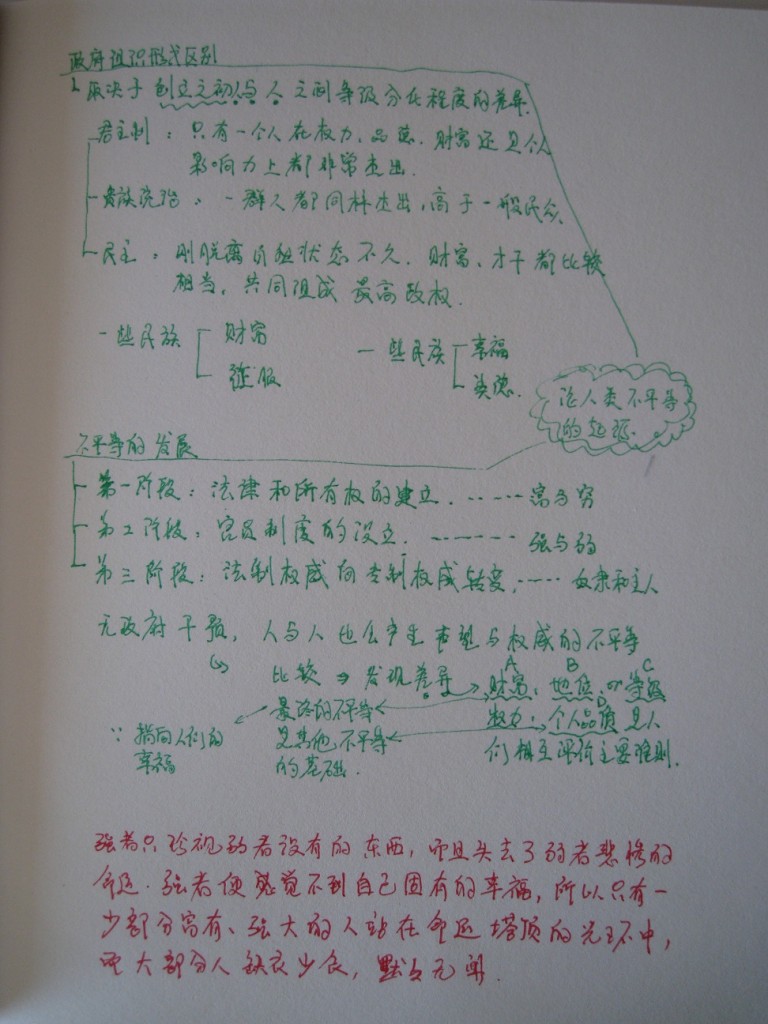 政府组织形式区别
取决于创立之初人与人之间等级分化程度的差异.
君主制：只有一个人在权力、品德、财富还是个人
影响力上都非常杰出.
贵族统治：一群人都同样杰出,高于一般民众.
民主：刚脱离自然状态不久.财富、才干都比较
相当,共同组成最高政权.
一些民族 财富
征服
一些民族 幸福
美德.
论人类不平等
的起源.
不平等的发展
第一阶段：法律和所有权的建立.……富与穷
第二阶段：官员制度的设立.……强与弱
第三阶段：法制权威向专制权威转变.……奴隶和主人
无政府干预,人与人也会产生声望与权威的不平等
比较⇒发现差异→
A B C
财富、地位or等级
D
权力、个人品质是人
们相互评价主要准则.
最终的不平等
是其他不平等
的基础.
∵指向人们的
幸福
强者只珍视弱者没有的东西,而且失去了弱者悲惨的
命运.强者便感觉不到自己固有的幸福,所以只有一
少部分富有、强大的人站在命运塔顶的光环中,
而大部分人缺衣少食,默默无闻.